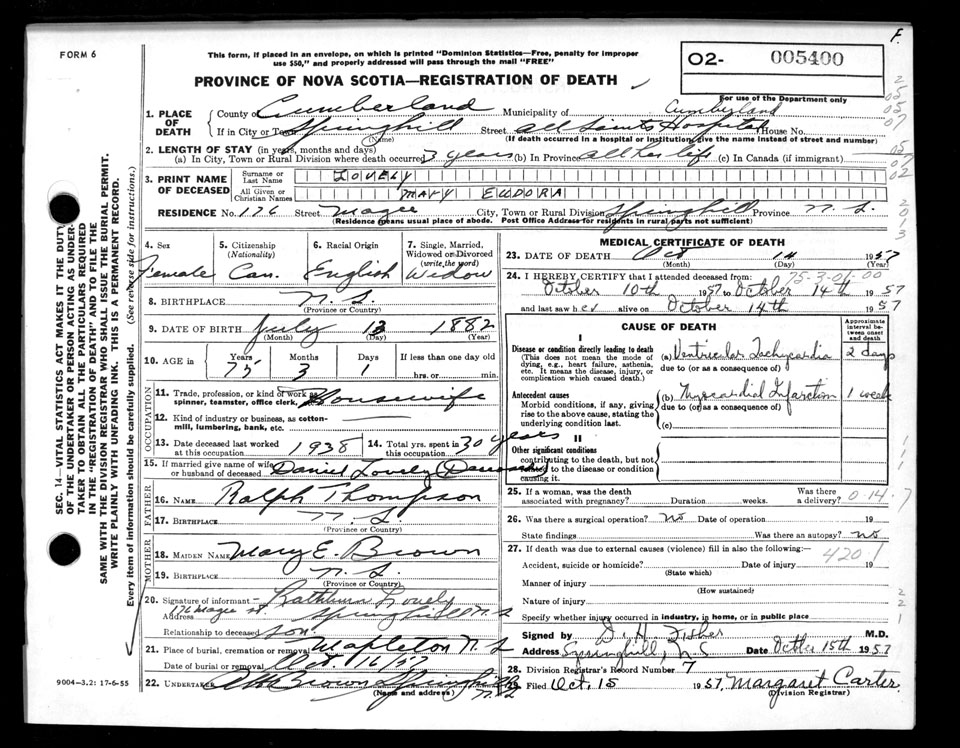 FORM 6
This form, if placed in an envelope, on which is printed "Dominion Statistics—Free, penalty for improper
use $50," and properly addressed will pass through the mail "FREE"
PROVINCE OF NOVA SCOTIA—REGISTRATION OF DEATH
O2- 005400
For use of the Department only
F.
1. PLACE OF DEATH
County of Cumberland Municipality of Cumberland
If in City or Town Springhill Street All Saints Hospital House No.
(Name) (If death occurred in a hospital or institution, give the name instead of street and number)
2. LENGTH OF STAY (in years, months and days)
(a) In City, Town or Rural Division where death occurred 3 years (b) In Province all her life (c) In Canada (if immigrant)
3. PRINT NAME OF DECEASED
Surname or Last Name LOVELY
All Given or Christian Names MARY EUDORA
RESIDENCE No. 176 Street Magee City, Town or Rural Division Springhill Province N.S.
(Residence means usual place of abode. Post Office Address for residents in rural parts not sufficient)
4. Sex
Female
5. Citizenship (Nationality)
Can.
6. Racial Origin
English
7. Single, Married, Widowed or Divorced (write the word)
Widow
8. BIRTHPLACE N.S.
(Province or Country)
9. DATE OF BIRTH July 13 1882
(Month) (Day) (Year)
10. AGE in Years Months Days If less than one day old
75 3 1 hrs. or min.
OCCUPATION
11. Trade, profession, or kind of work as
spinner, teamster, office clerk, Housewife
12. Kind of industry or business, as cotton-
mill, lumbering, bank, etc.
13. Date deceased last worked at this occupation 1938
14. Total yrs. spent in this occupation 30 years
15. If married give name of wife or husband of deceased Daniel Lovely (Deceased)
FATHER
16. NAME Ralph Thompson
17. BIRTHPLACE N.S.
(Province or Country)
MOTHER
18. MAIDEN NAME Mary E. Brown
19. BIRTHPLACE N.S.
(Province or Country)
20. Signature of informant Rathburn Lovely
Address 176 Magee St. Springhill N.S.
Relationship to deceased son
21. Place of burial, cremation or removal Mapleton N.S.
Date of burial or removal Oct 16/57
22. UNDERTAKER Brown Springhill N.S.
(Name and address)
9004-3.2: 17-6-55
SEC. 14—VITAL STATISTICS ACT MAKES IT THE DUTY
OF THE UNDERTAKER OR PERSON ACTING AS UNDER-
TAKER TO OBTAIN ALL THE PARTICULARS REQUIRED
IN THE "REGISTRATION OF DEATH" AND TO FILE THE
SAME WITH THE DIVISION REGISTRAR WHO SHALL ISSUE THE BURIAL PERMIT.
WRITE PLAINLY WITH UNFADING INK. THIS IS A PERMANENT RECORD.
Every item of information should be carefully supplied. (See reverse side for instructions.)
MEDICAL CERTIFICATE OF DEATH
23. DATE OF DEATH Oct 14 1957
(Month) (Day) (Year)
75-3-01-00
24. I HEREBY CERTIFY that I attended deceased from
October 10th 1957 to October 14th 1957
and last saw her alive on October 14th 1957
CAUSE OF DEATH
Approximate interval between onset and death
I
Disease or condition directly leading to death
(This does not mean the mode of
dying, e.g., heart failure, asthenia,
etc. It means the disease, injury, or
complication which caused death.)
(a) Ventricular Tachycardia 2 days
due to (or as a consequence of)
Antecedent causes
Morbid conditions, if any, giving
rise to the above cause, stating the
underlying condition last.
(b) Myocardial Infarction 1 week
due to (or as a consequence of)
(c)
II
Other significant conditions
contributing to the death, but not
related to the disease or condition
causing it.
25. If a woman, was the death associated with pregnancy? Duration weeks. Was there a delivery?
0.14.7
26. Was there a surgical operation? No Date of operation 19
State findings Was there an autopsy? no
27. If death was due to external causes (violence) fill in also the following:—
420.1
Accident, suicide or homicide? Date of injury 19
(State which)
Manner of injury
(How sustained)
Nature of injury
Specify whether injury occurred in industry, in home, or in public place
Signed by D. H. Fisher M.D.
Address Springhill, N.S. Date October 15th 1957
28. Division Registrar's Record Number 7
29. Filed Oct. 15 1957 Margaret Carter
(Division Registrar)